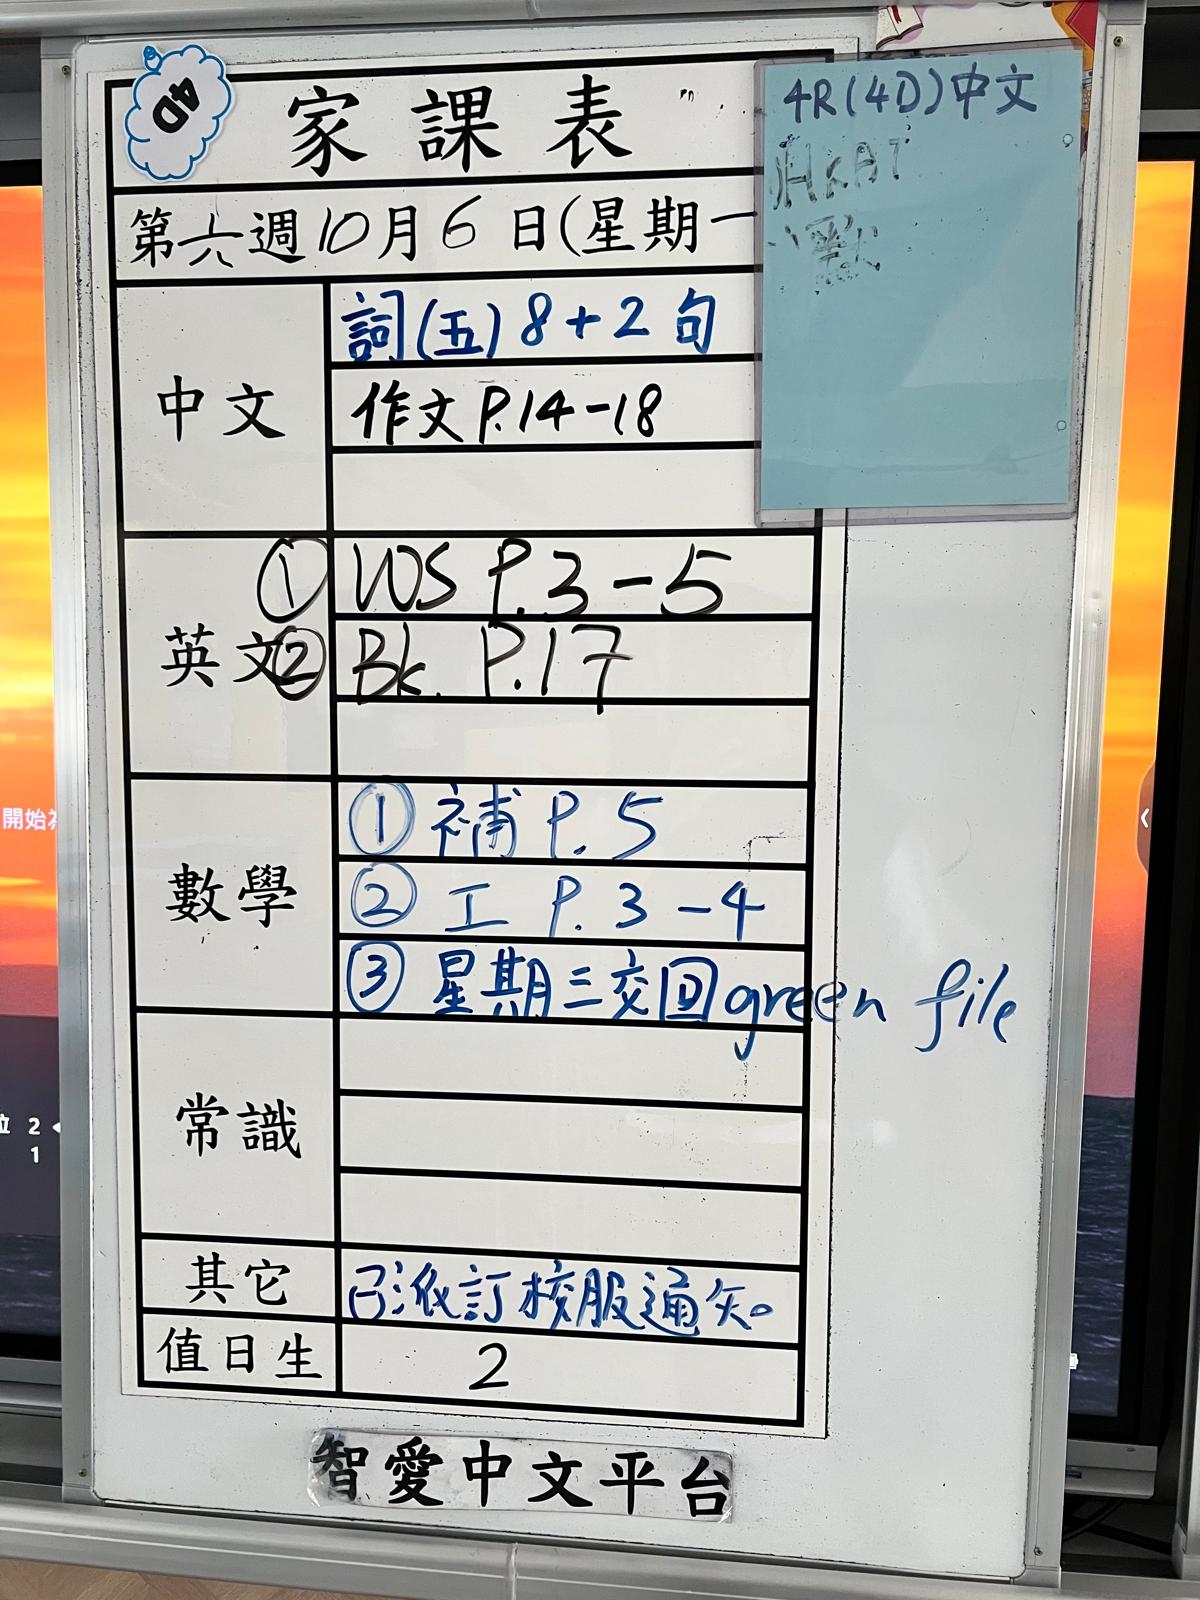 4D
家課表
4R(4D)中文
第六週10月6日(星期一
中文
詞(五)8+2句
作文P.14-18
英文
① WS P.3-5
② Bk. P.17
數學
① 補 P.5
② 工 P.3-4
③ 星期三交回green file
常識
其它
已派訂校服通知。
值日生
2
智愛中文平台
開始
2
1